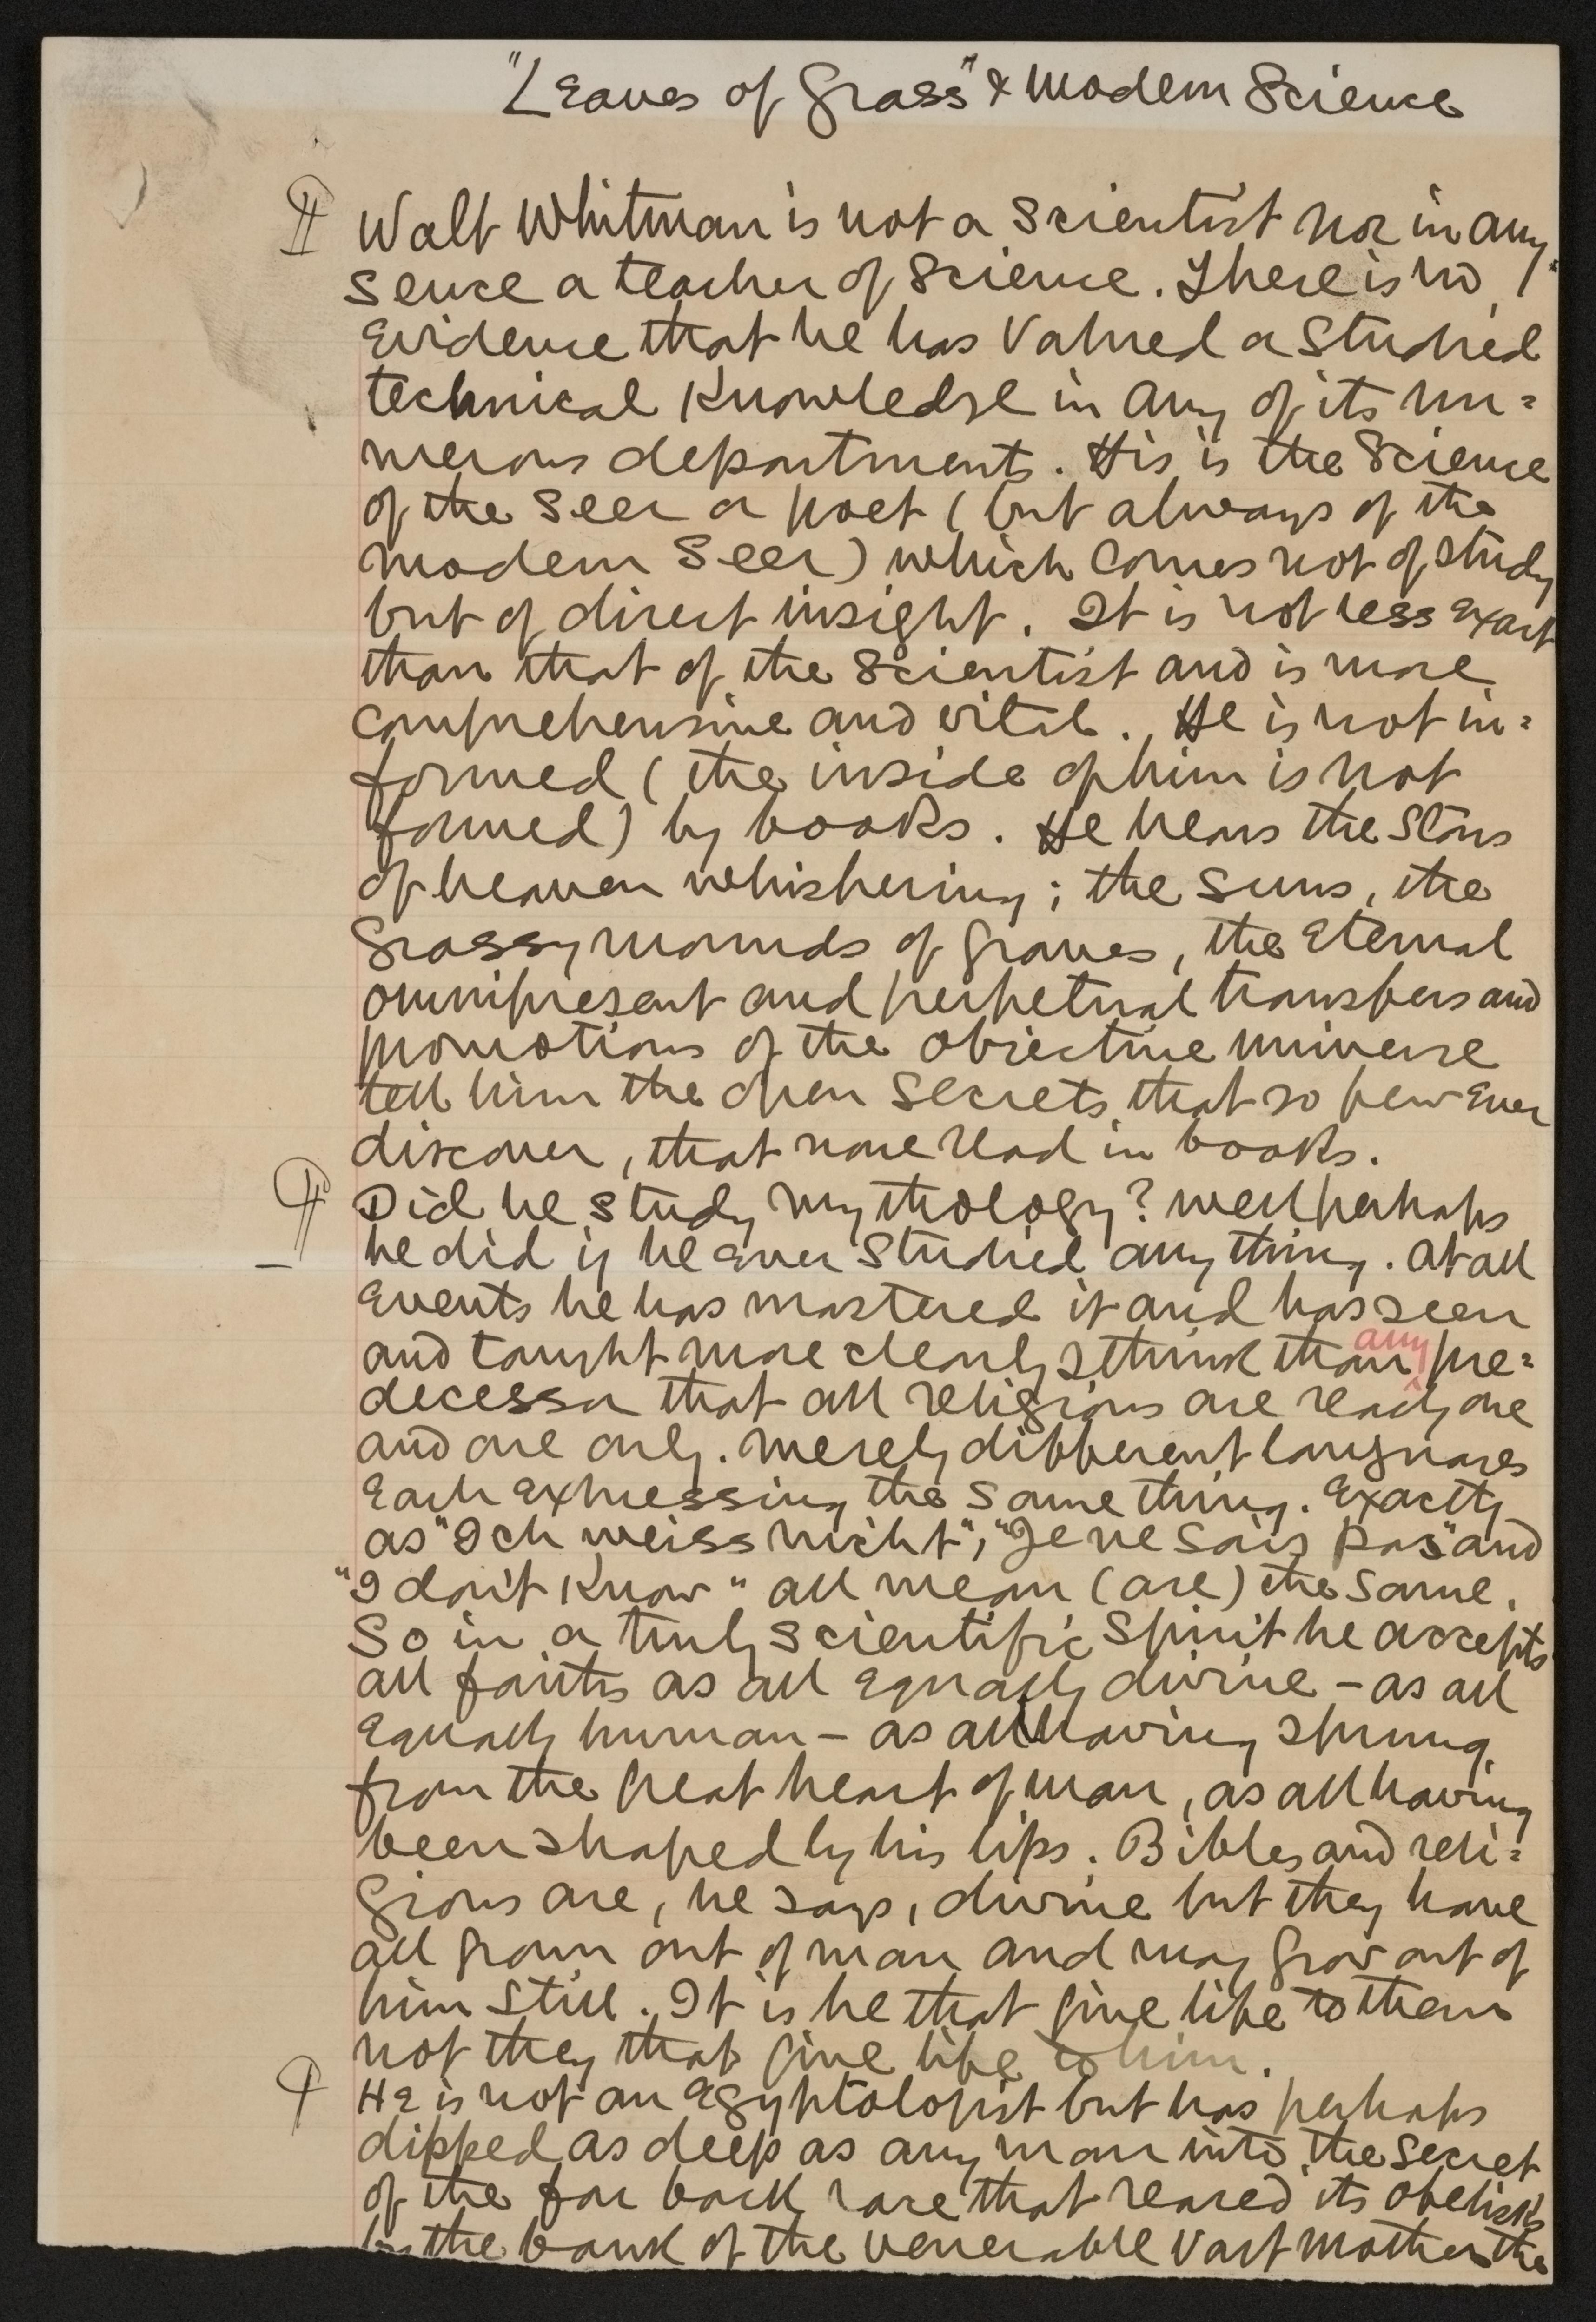 "Leaves of Grass" & Modern Science
¶ Walt Whitman is not a scientist nor in any
sence a teacher of science. There is no
evidence that he has valued a studied
technical knowledge in any of its nu=
merous departments. His is the science
of the seer or poet (but always of the
modern seer) which comes not of study
but of direct insight. It is not less exact
than that of the scientist and is more
comprehensive and vital. He is not in=
formed (the inside of him is not
formed) by books. He hears the stars
of heaven whishering; the suns, the
grassy mounds of graves, the eternal
omnipresent and perpetual transfers and
promotions of the objective universe
tell him the open secrets that so few ever
discover, that none read in books.
¶ Did he study mythology? well perhaps
he did if he ever studied anything. At all
events he has mastered it and has seen
any
and taught more clearly I think than ^ pre=
decessor that all religions are really one
and one only. Merely different languages
each expressing the same thing. Exactly
as "Ich weiss nicht", "Je ne sais pas" and
"I don't know" all mean (are) the same.
So in a truly scientific spirit he accepts
all faiths as all equally divine – as all
equally human – as all having sprung
from the great heart of man, as all having
been shaped by his lips. Bibles and reli=
gions are, he says, divine but they have
all grown out of man and may grow out of
him still. It is he that give life to them
not they that give life to him.
¶ He is not an Egyptologist but has perhaps
dipped as deep as any man into the secret
of the far back race that reared its obelisks
by the bank of the venerable vast mother the